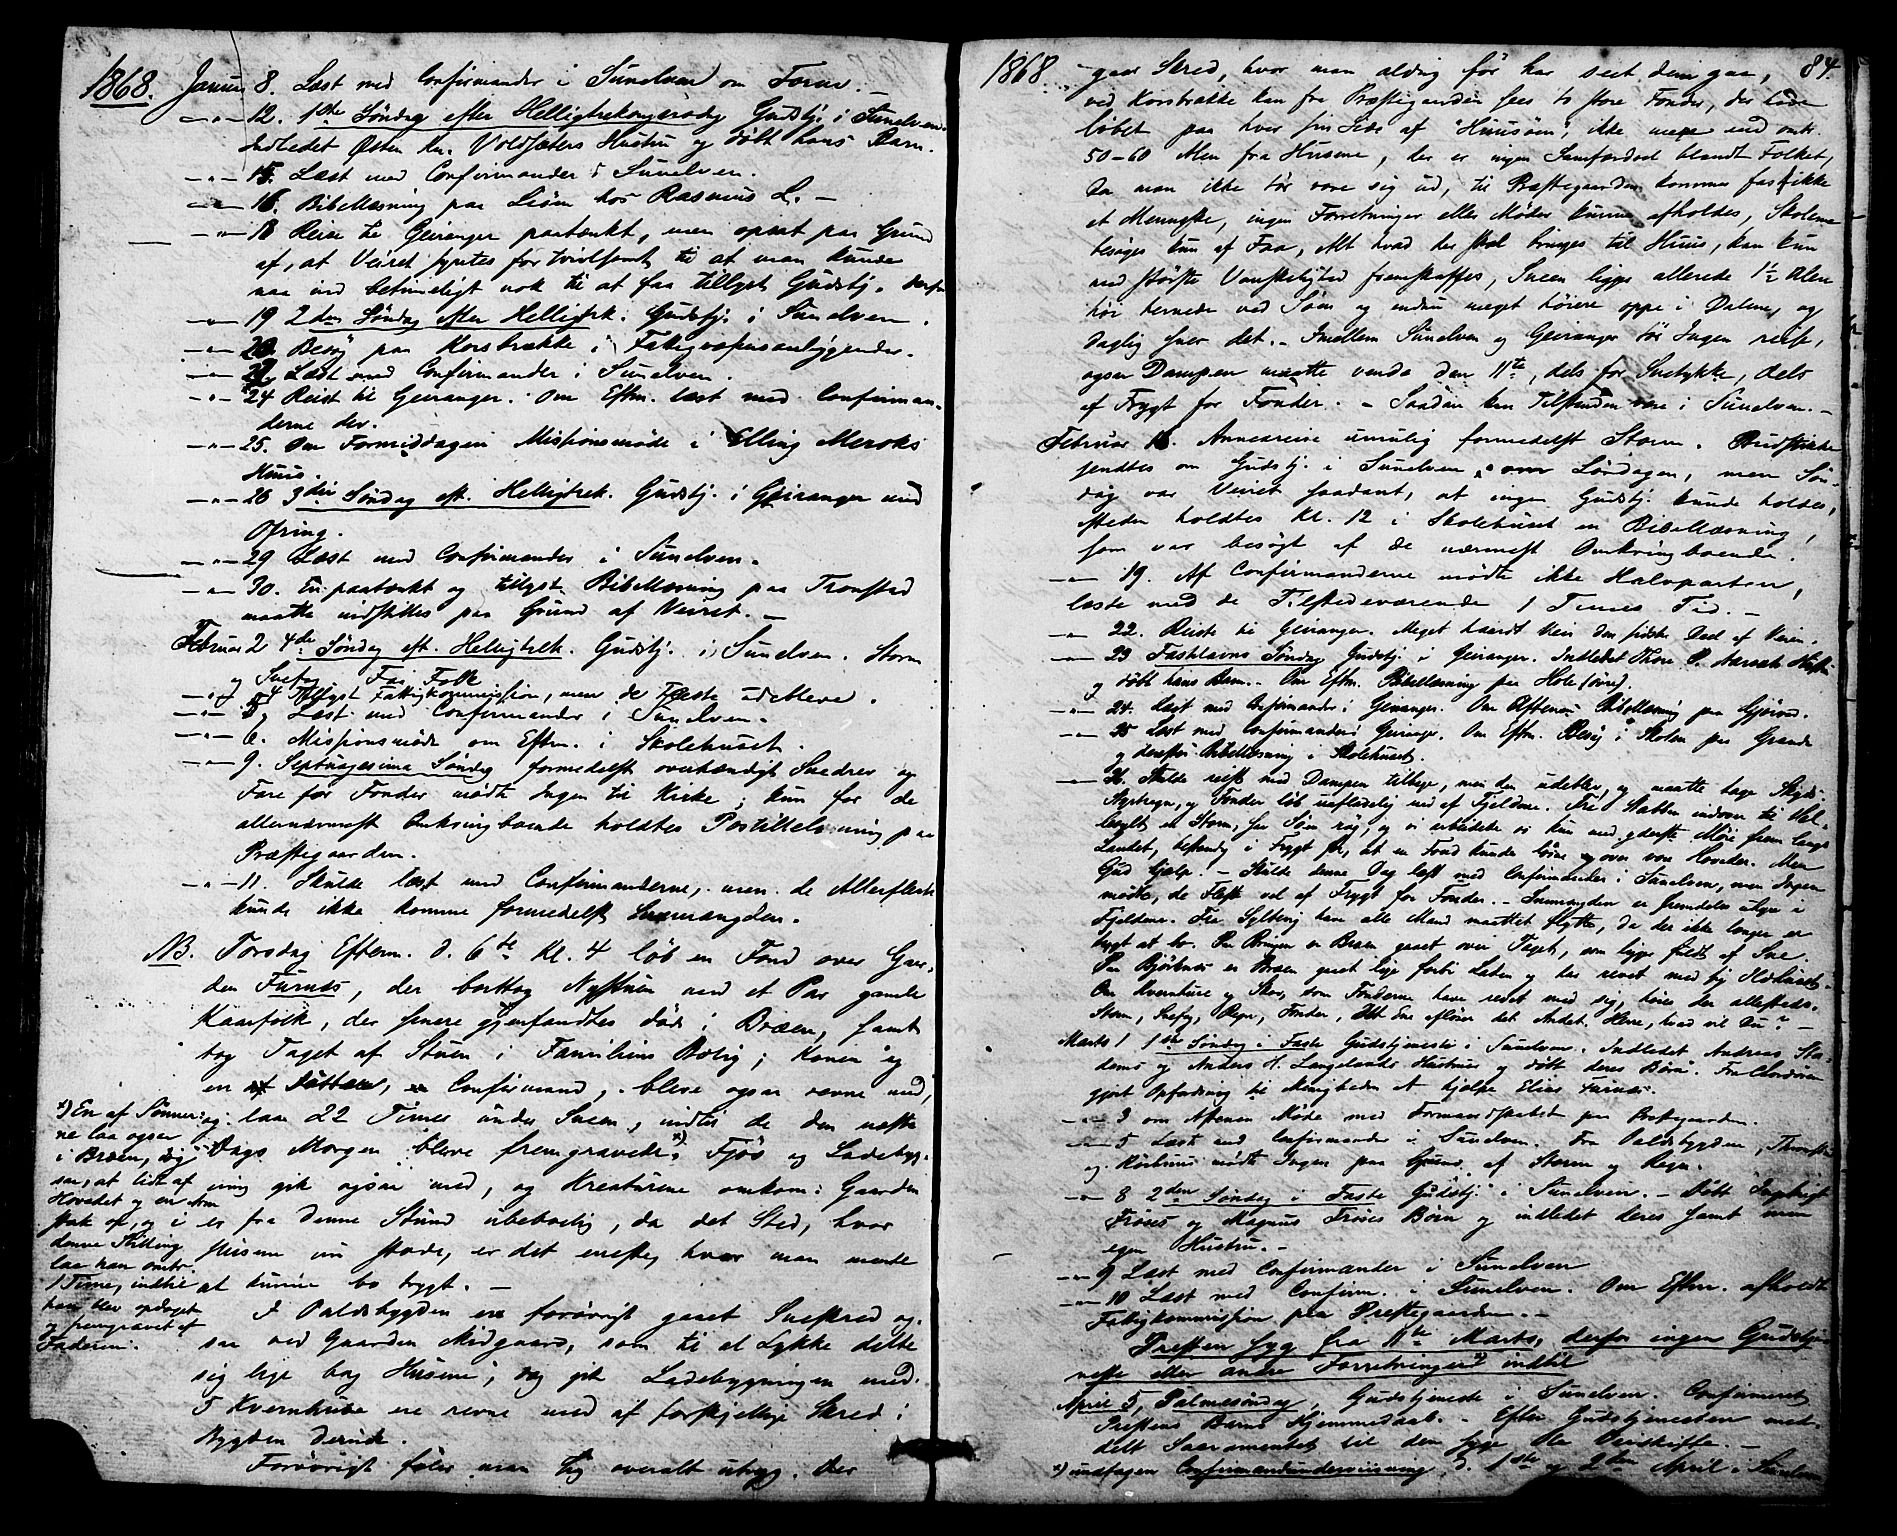 1868. Januar 8. Læst med Confirmander i Sunelven om Forme.—
—„— 12. 1ste Søndag efter Helligtrekongersdag Gudstj. i Sunelven.
Indledet Østen Kn. Voldsæters Hustru og døbt hans Barn.
—„— 15. Læst med Confirmander i Sunelven.
—„— 16. Bibellæsning paa Liøen hos Rasmus L. —
—„— 18 Reise til Geiranger paatænkt, men opsat paa Grund
af, at Veiret syntes for tvivlsomt til at man kunde
naa ind betimeligt nok til at faa tillyst Gudstj. derfor
—„— 19 2den Søndag efter Helligtrk. Gudstj. i Sunelven.
—„— 20. Besøg paa Korsbrække i Fattigvæsensanliggender.
—„— 22. Læst med Confirmander i Sunelven.
—„— 24 Reist til Geiranger. Om Eftm. læst med Confirman-
derne der.
—„— 25. Om Formiddagen Missionsmøde i Elling Meroks
Huus.
—„— 26 3die Søndag eft. Helligtrek. Gudstj. i Geiranger med
Ofring.
—„— 29 Læst med Confirmander i Sunelven.
—„— 30. En paatænkt og tillyst Bibellæsning paa Tronstad
maatte indstilles paa Grund af Veiret. —
Februar 2 4de Søndag eft. Helligtrek. Gudstj. i Sunelven. Storm
og Snefog. Faa Folk
—„— 4 Tillyst Fattigkommission, men de Fleste udebleve.
—„— 5. Læst med Confirmander i Sunelven.
—„— 6. Missionsmøde om Eftm. i Skolehuset.
—„— 9. Septuagesima Søndag formedelst overhændigt Snedrev og
Fare for Fonder mødte Ingen til Kirke; kun for de
allernærmest Omkringboende holdtes Postillelæsning paa
Præstegaarden.
—„— 11. Skulde læst med Confirmanderne, men de Allerfleste
kunde ikke komme formedelst Snemængden.
NB. Torsdag Efterm. d. 6te Kl. 4 løb en Fond over Gaar-
den Furnes, der borttog Nystuen med et Par gamle
Kaarfolk, der senere gjenfandtes døde i Bræen, samt
tog Taget af Stuen i Familiens Bolig; Konen og
en Datter, Confirmand, bleve ogsaa revne med,
og laa 22 Timer under Sneen, indtil de den næste
Dags Morgen bleve fremgravede.*) Fjøs og Ladebyg-
ning gik ogsaa med, og Kreaturene omkom: Gaarden
er fra denne Stund ubeboelig, da det Sted, hvor
Husene nu stode, er det eneste, hvor man mente
at kunne bo trygt. —
*) En af Sønner-
ne laa ogsaa
i Bræen,
saa, at lidt af
Hovedet og en Arm
stak op, og i
denne Stilling
laa han omtr.
1 Time, indtil
han blev opdaget
og fremgravet af
Faderen.
I Valdsbygden er forøvrigt gaaet Sneskred og-
saa ved Gaarden Midgaard, som til al Lykke delte
sig lige bag Husene; dog gik Ladebygningen med.
5 Kvernhuse ere revne med af forskjellige Skred i
Bygden derinde.
Forøvrigt føler man sig overalt utryg. Der
1868. gaar Skred, hvor man aldrig før har seet dem gaa, 84.
ved Korsbrække kan fra Præstegaarden sees to store Fonder, der have
løbet paa hver sin Side af "Huusøen", ikke mere end omtr.
50-60 Alen fra Husene, der er ingen Samfærdsel blandt Folket,
da man ikke tør vove sig ud, til Præstegaarden kommer fast ikke
et Menneske, ingen Forretninger eller Møder kunne afholdes, Skolerne
besøges kun af Faa, Alt hvad der skal bringes til Huus, kan kun
med største Vanskelighed fremskaffes, Sneen ligger allerede 1½ Alen
høi hernede ved Søen og endnu meget høiere oppe i Dalene, og
daglig sner det. - Imellem Sunelven og Geiranger tør Ingen reise,
ogsaa Dampen maatte vende den 11te, dels for Snetykke, dels
af Frygt for Fonder. - Saadan kan Tilstanden være i Sunelven. -
Februar 16. Annexreise umulig formedelst Storm. Budstikke
sendtes om Gudstj. i Sunelven om Søndagen, men Søn-
dag var Veiret saadant, at ingen Gudstj. kunde holdes,
isteden holdtes Kl. 12 i Skolehuset en Bibellæsning,
som var besøgt af de nærmest Omkringboende.
—„— 19. Af Confirmanderne mødte ikke Halvparten,
læste med de Tilstedeværende 1 Times Tid. —
—„— 22. Reiste til Geiranger. Meget haardt Veir den sidste Deel af Veien.
—„— 23 Fastelavns Søndag Gudstj. i Geiranger. Indledet Thore P. Hustru
og døbt hans Barn. - Om Eftm. Bibellæsning paa Hole (øvre).
—„— 24. Læst med Confirmander i Geiranger. Om Aftenen Bibellæsning paa Gjørva.
—„— 25 Læst med Confirmander i Geiranger. Om Eftm. Besøg i Skolen paa Grande
og derefter Bibellæsning i Skolehuset.
—„— 26 Skulde reist med Dampen tilbage, men den udeblev, og maatte tage Skyds.
Styrtregn, og Fonder løb uafladelig ned af Fjeldene. Fra Stabben indover til Hel-
lesylt en Storm, saa Søen røg, og vi arbeidede os kun med yderste Møie frem langs
Landet, bestandig i Frygt for, at en Fond kunde løsne over vore Hoveder. Men
Gud hjalp. - Skulde denne Dag læst med Confirmander i Sunelven, men Ingen
mødte, de Fleste vel af Frygt for Fonder. - Snemængden er fremdeles uhyre i
Fjeldene. Fra Syltevig have alle Mand maattet flytte, da der ikke længer er
trygt at bo. Paa Bringen er Bræen gaaet over Taget, som ligger fuldt af Sne.
Paa Bjørknes er Bræen gaaet lige forbi Laden og har revet med sig Høhuset.
Om Kverntufte og Skov, som Fonderne have revet med sig, høres der allesteds.
Storm, Snefog, Regn, Fonder, Alt det Ene afløser det Andet. Herre, hvad vil Du? —
Marts 1 1ste Søndag i Faste Gudstjeneste i Sunelven. Indledet Andreas Sta-
dems og Anders H. Langelands Hustruer og døbt deres Børn. Fra Chordøren
gjort Opfordring til Menigheden at hjælpe Elias Furnes.
—„— 3 om Aftenen Møde med Formandskabet paa Præstegaarden.
—„— 5 Læst med Confirmander i Sunelven. Fra Valdsbygden, Thronstad
og mødte Ingen paa Grund af Storm og Regn.
—„— 8 2den Søndag i Faste Gudstj. i Sunelven. - Døbt Ingebrigt
Frøses og Magnus Frøses Børn og indledet deres samt min
egen Hustru. -
—„— 9 Læst med Confirmander i Sunelven
—„— 10 Læst med Confirm. i Sunelven. Om Eftm. afholdt
Fattigkommission paa Præstegaarden. -
Præsten syg fra 11te Marts, derfor ingen Gudstje-
neste eller andre Forretninger*) indtil
April 5, Palmesøndag, Gudstjeneste i Sunelven. Confirmeret
Præstens Barns Hjemmedaab. - Efter Gudstjenesten med-
delt Sacramentet til den syge Ole. -
*) undtagen Confirmandundervisning d. 1ste og 2den April i Sunelven